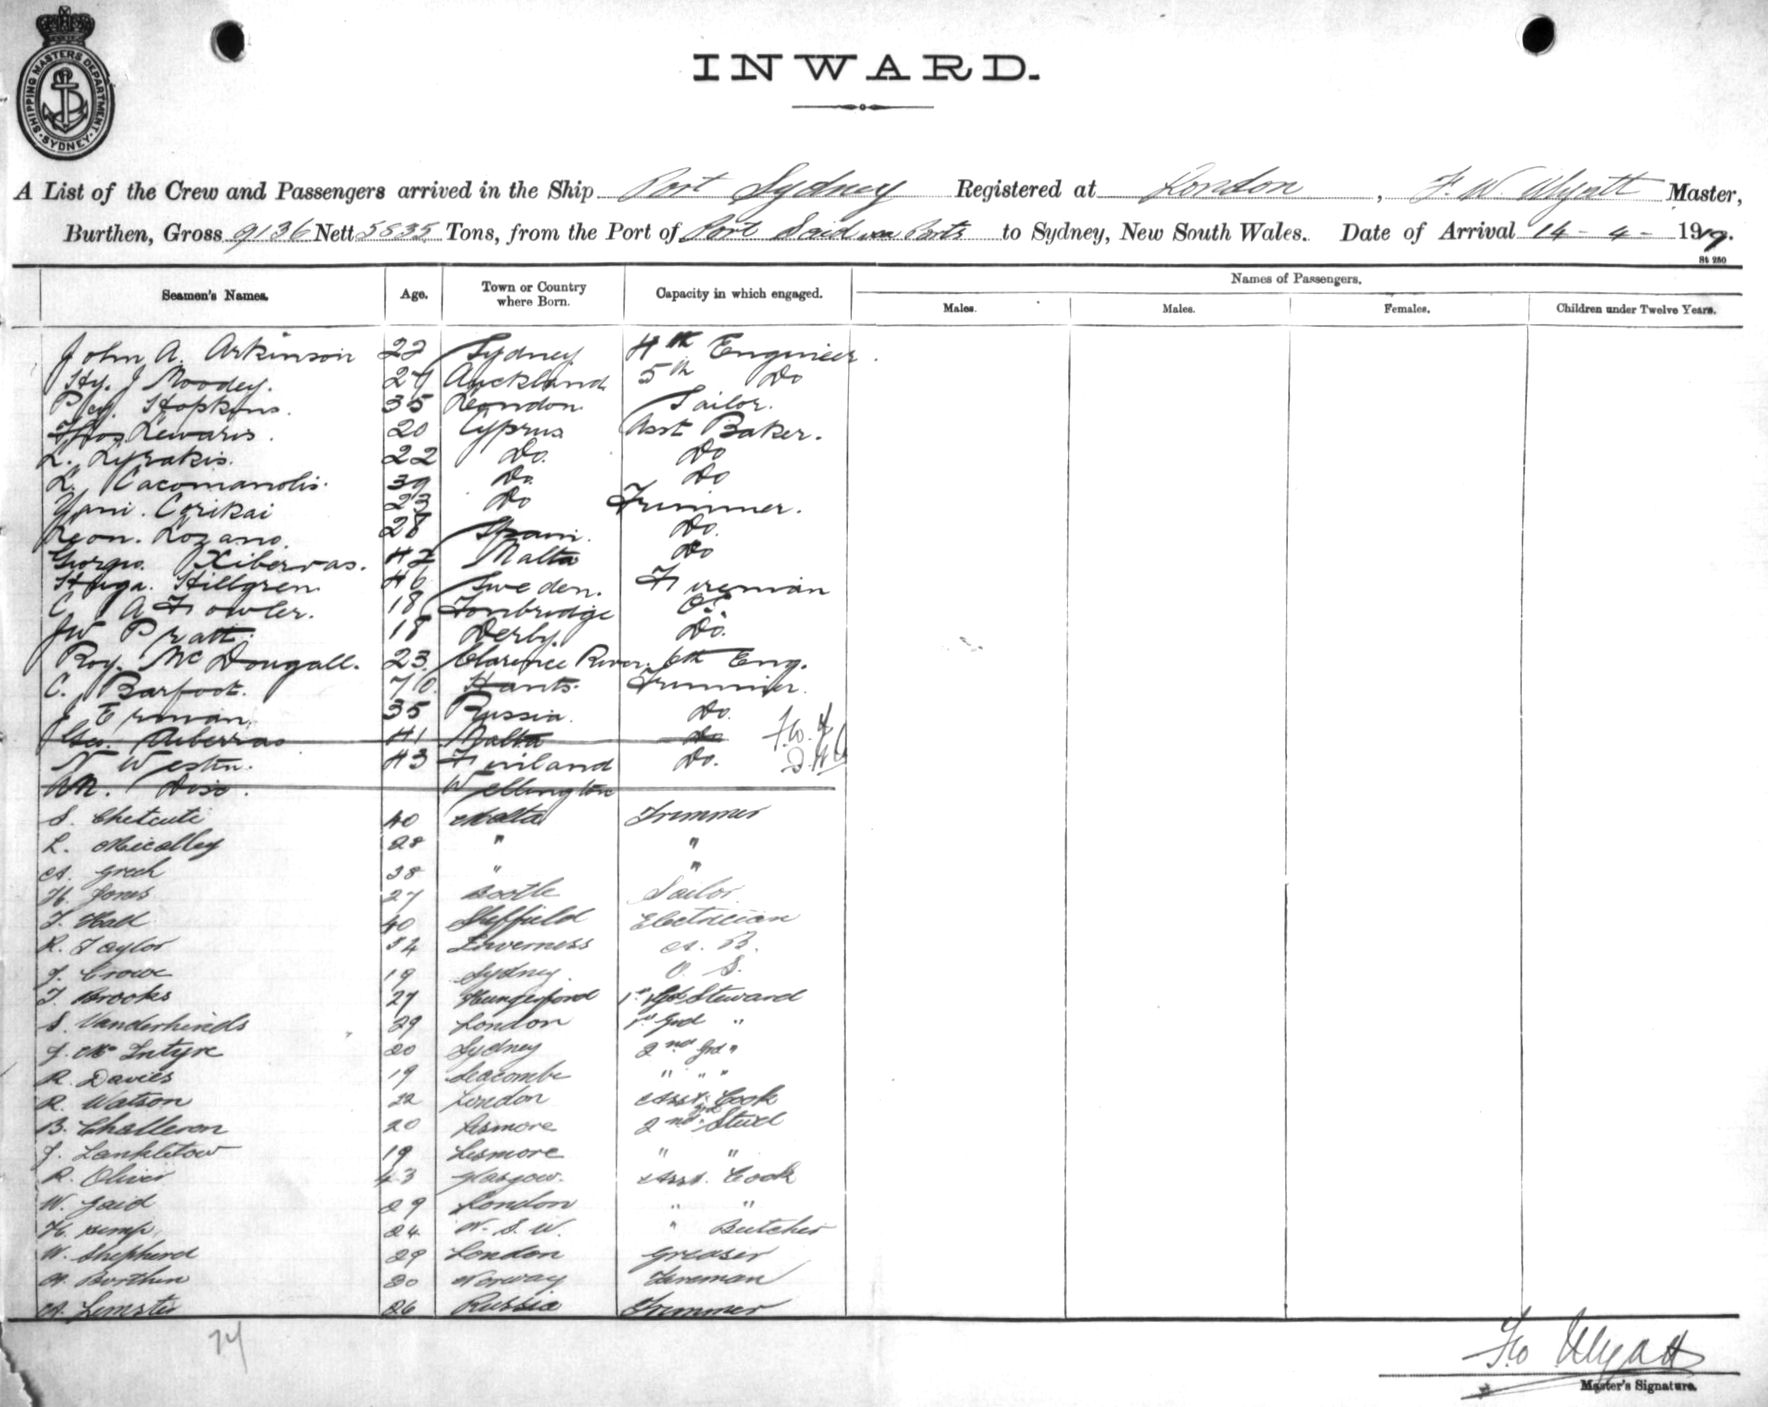 SHIPPING MASTERS DEPARTMENT · SYDNEY ·
INWARD.
A List of the Crew and Passengers arrived in the Ship Port Sydney Registered at London, F. W. Wyatt Master,
Burthen, Gross 9136 Nett 5835 Tons, from the Port of Port Said via Ports to Sydney, New South Wales. Date of Arrival 14 - 4 - 1919.
St 280
Seamen's Names. Age. Town or Country where Born. Capacity in which engaged. Names of Passengers.
Males. Males. Females. Children under Twelve Years.
John A. Arkinson 22 Sydney 4th Engineer
Hy. J Moodey. 27 Auckland 5th Do
Percy. Hopkins. 35 London Sailor.
Thos Lewaris. 20 Cyprus Asst Baker.
L. Lyrakis. 22 Do. Do
L. Cacomanolis. 39 Do. Do
Yani. Cqrikai 23 Do Trimmer.
Leon. Lozano. 28 Spain. Do.
Giorgio. Xiberras. 42 Malta Do
Huga. Hillgren. 46 Sweden. Fireman
C. A Fowler. 18 Tonbridge OS.
JW Pratt. 18 Derby. Do.
Roy. Mc Dougall. 23. Clarence River. 6th Eng.
C. Barfoot. 40. Hants. Trimmer.
J Erman. 35 Russia. Do.
Geo. Xiberras 41 Malta Do F.W.
N Westin. 43 Finland Do.
Wellington
S. Chetcuti 40 Malta Trimmer
L. Micalley 28 " "
A. Grech 38 " "
H. Jones 27 Bootle Sailor.
T. Hall 40 Sheffield Electrician
R. Taylor 52 Inverness A. B.
J. Crowe 19 Sydney. O. S.
T. Brooks 27 Hungerford 1st Gd Steward
S. Vanderhinds 29 London 1st Grd "
J. Mc Intyre 20 Sydney 2nd Grd "
R. Davies 19 Seacombe " " "
R. Watson 22 London Asst. Cook
B. Challeron 20 Lismore 2nd grd Stwd
J. Lankletow 19 Lismore " "
R. Oliver 43 Glasgow. Asst. Cook
W. Gaid 29 London " "
H. Kemp. 24 N. S. W. " Butcher
W. Shepherd 29 London Greaser
A. Borthen 30 Norway Fireman
A. Limster 26 Russia Trimmer
74
F W Wyatt
Master's Signature.